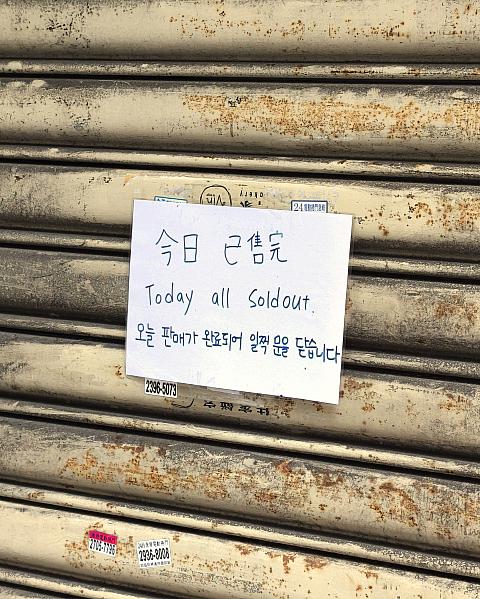 今日 已售完
Today all soldout.
오늘 판매가 완료되어 일찍 문을 닫습니다
2396-5073
2705-7796
2936-8008